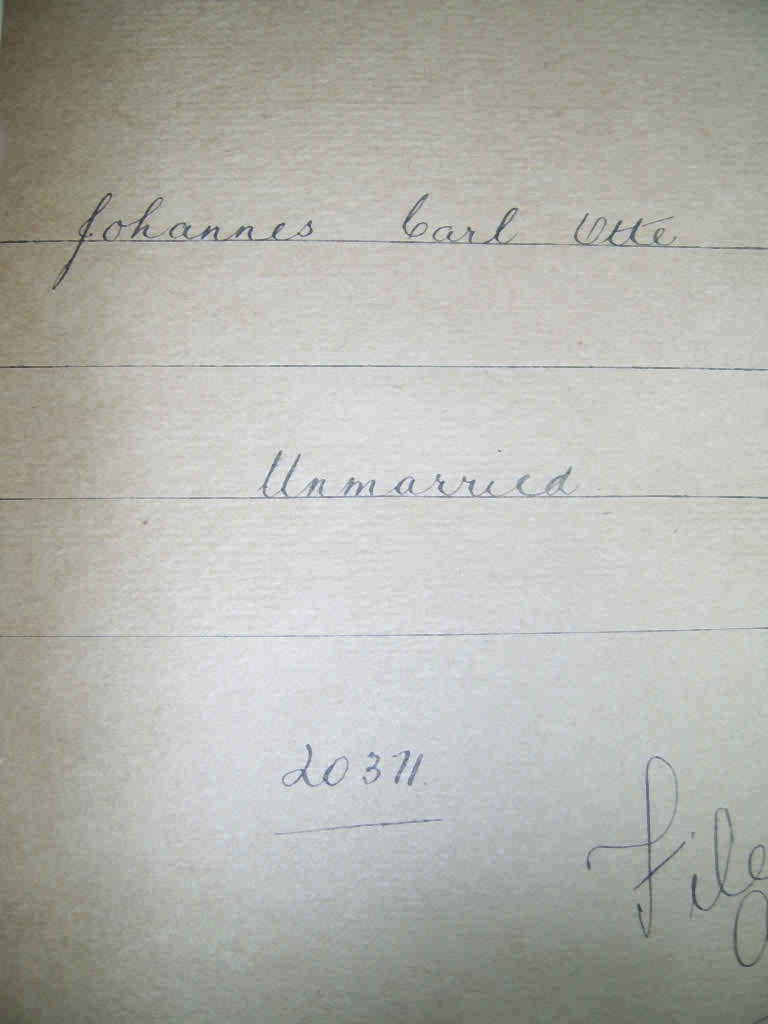 Johannes Carl Otte
Unmarried
20371
File